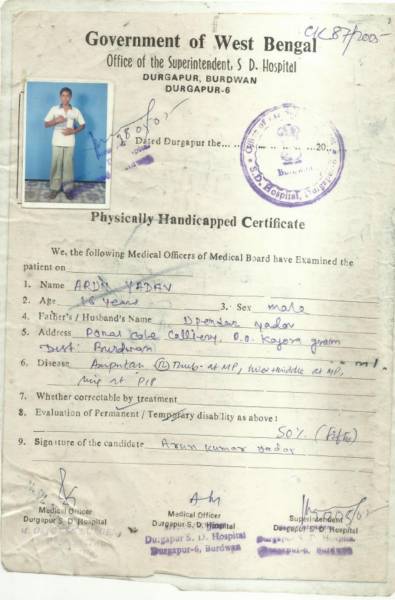 CK 87/2005
Government of West Bengal
Office of the Superintendent, S D. Hospital
DURGAPUR, BURDWAN
DURGAPUR-6
Dated Durgapur the 20
S.D. Hospital, Durgapur
Physically Handicapped Certificate
We, the following Medical Officers of Medical Board have Examined the
patient on
1. Name ARUN YADAV
2. Age 16 Years 3. Sex male
4. Father's / Husband's Name Upendar yadav
5. Address Colliery, P.O. Kajora gram
Dist: Burdwan
6. Disease Thumb at MP, at MP,
ring at PIP
7. Whether correctable by treatment
8. Evaluation of Permanent / Temporary disability as above :
50% (Fifty)
9. Signature of the candidate Arun Kumar Yadav
Medical Officer Medical Officer Superintendent
Durgapur S. D. Hospital Durgapur S. D. Hospital Durgapur S. D. Hospital
Durgapur S. D. Hospital
Durgapur-6, Burdwan